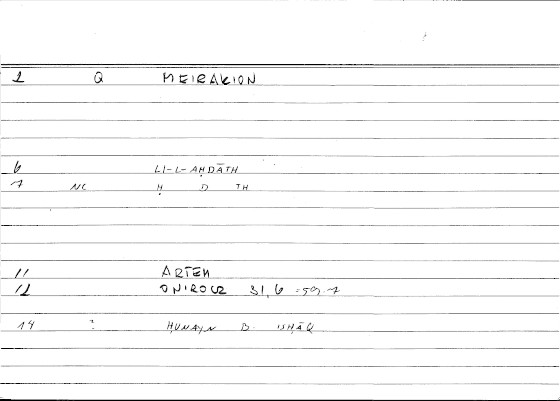 1 Q MEIRAKION
6 LI-L-AḤDĀTH
7 NC Ḥ D TH
11 ARTEM
12 ONIROCR 31,6 = 59.7
14 : ḤUNAYN B. ISḤĀQ